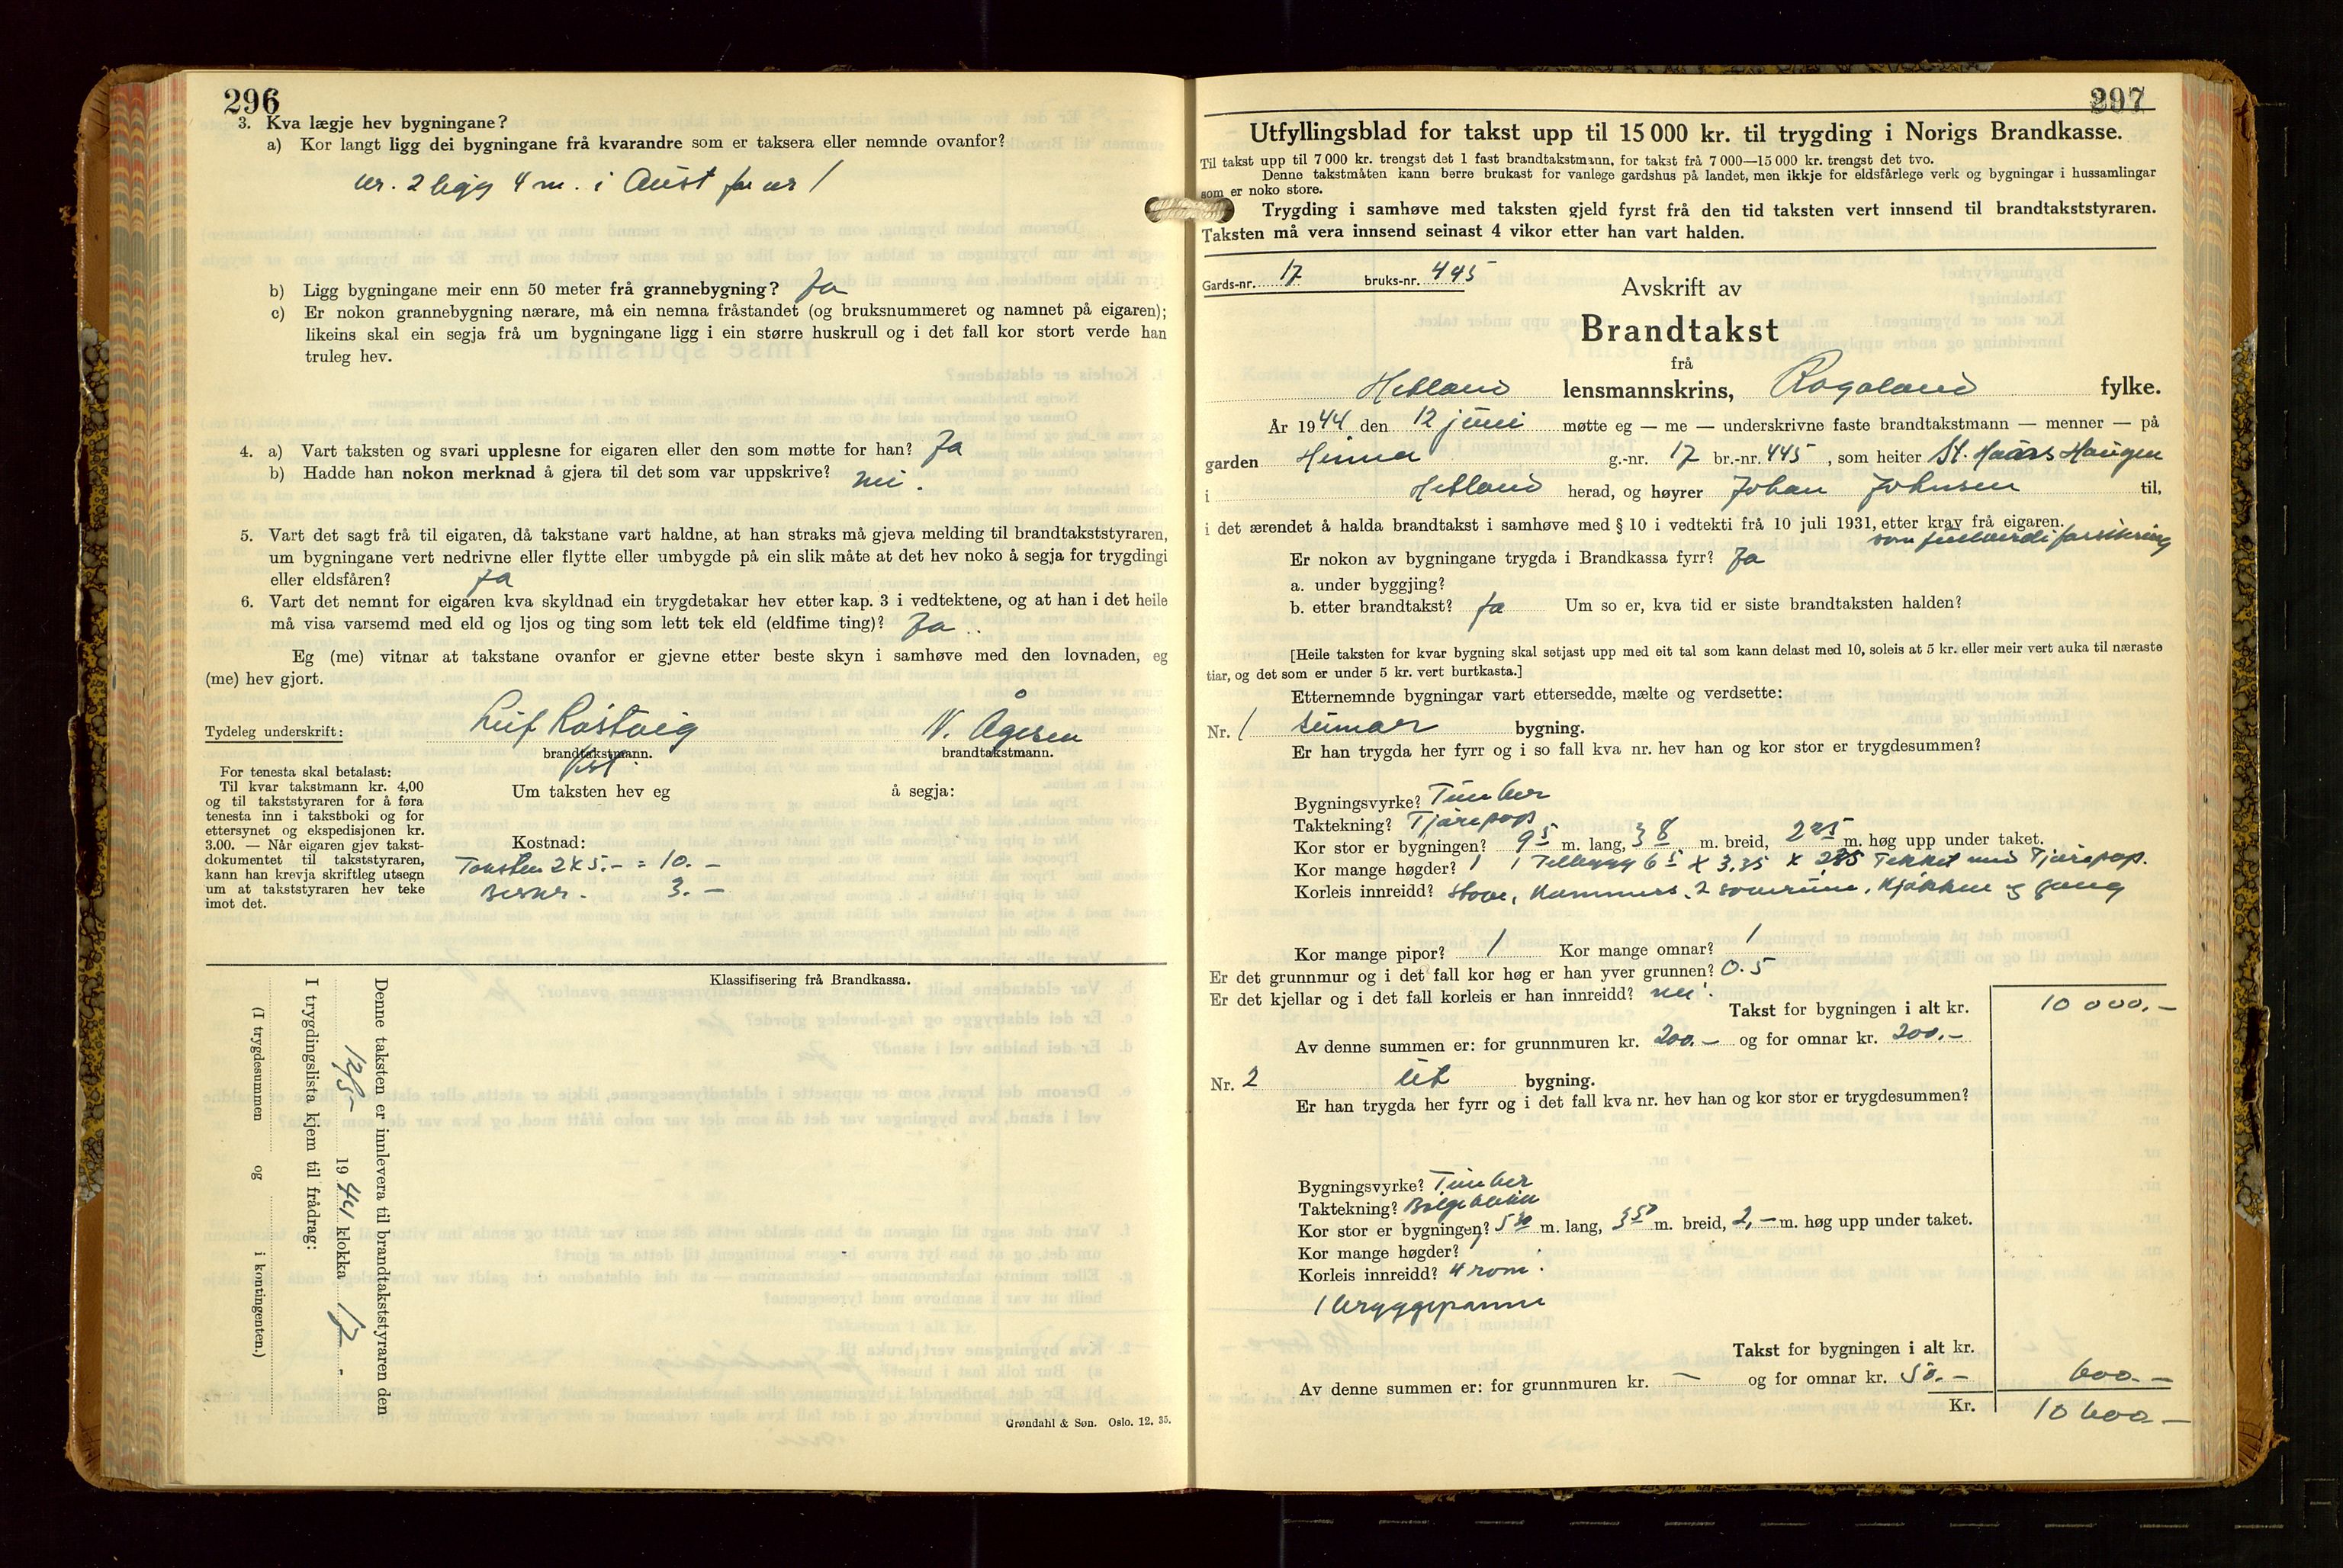 296
3. Kva lægje hev bygningane?
a) Kor langt ligg dei bygningane frå kvarandre som er taksera eller nemnde ovanfor?
nr. 2 ligg 4 m. i Aust for nr 1
b) Ligg bygningane meir enn 50 meter frå grannebygning? Ja
c) Er nokon grannebygning nærare, må ein nemna fråstandet (og bruksnummeret og namnet på eigaren);
likeins skal ein segja frå um bygningane ligg i ein større huskrull og i det fall kor stort verde han
truleg hev.
4. a) Vart taksten og svari upplesne for eigaren eller den som møtte for han? Ja
b) Hadde han nokon merknad å gjera til det som var uppskrive? nei.
5. Vart det sagt frå til eigaren, då takstane vart haldne, at han straks må gjeva melding til brandtakststyraren,
um bygningane vert nedrivne eller flytte eller umbygde på ein slik måte at det hev noko å segja for trygdingi
eller eldsfåren? Ja
6. Vart det nemnt for eigaren kva skyldnad ein trygdetakar hev etter kap. 3 i vedtektene, og at han i det heile
må visa varsemd med eld og ljos og ting som lett tek eld (eldfime ting)? Ja
Eg (me) vitnar at takstane ovanfor er gjevne etter beste skyn i samhøve med den lovnaden, eg
(me) hev gjort.
Tydeleg underskrift: Leif Røstvig N. Ågesen
brandtakstmann. brandtakstmann.
For tenesta skal betalast:
Til kvar takstmann kr. 4,00
og til takststyraren for å føra
tenesta inn i takstboki og for
ettersynet og ekspedisjonen kr.
3.00. — Når eigaren gjev takst-
dokumentet til takststyraren,
kann han krevja skriftleg utsegn
um at takststyraren hev teke
imot det.
Um taksten hev eg å segja:
Kostnad:
Taksten 2 x 5.- = 10.-
3.-
Klassifisering frå Brandkassa.
Denne taksten er innlevera til brandtakststyraren den
12/5- 1944 klokka 17
I trygdingslista kjem til frådrag:
(I trygdesummen og i kontingenten.)
Grøndahl & Søn. Oslo. 12. 35.
297
Utfyllingsblad for takst upp til 15 000 kr. til trygding i Norigs Brandkasse.
Til takst upp til 7 000 kr. trengst det 1 fast brandtakstmann, for takst frå 7 000—15 000 kr. trengst det tvo.
Denne takstmåten kann berre brukast for vanlege gardshus på landet, men ikkje for eldsfårlege verk og bygningar i hussamlingar
som er noko store.
Trygding i samhøve med taksten gjeld fyrst frå den tid taksten vert innsend til brandtakststyraren.
Taksten må vera innsend seinast 4 vikor etter han vart halden.
Gards-nr. 17 bruks-nr. 445
Avskrift av
Brandtakst
frå
Hetland lensmannskrins, Rogaland fylke.
År 1944 den 12 juni møtte eg — me — underskrivne faste brandtakstmann — menner — på
garden Hinna g.-nr. 17 br.-nr. 445, som heiter St. Haars Haugen
i Hetland herad, og høyrer Johan Johnsen til,
i det ærendet å halda brandtakst i samhøve med § 10 i vedtekti frå 10 juli 1931, etter krav frå eigaren.
som fullverdiforsikring
Er nokon av bygningane trygda i Brandkassa fyrr? Ja
a. under byggjing?
b. etter brandtakst? Ja Um so er, kva tid er siste brandtaksten halden?
[Heile taksten for kvar bygning skal setjast upp med eit tal som kann delast med 10, soleis at 5 kr. eller meir vert auka til næraste
tiar, og det som er under 5 kr. vert burtkasta.]
Etternemnde bygningar vart ettersedde, mælte og verdsette:
Nr. 1 sumar bygning.
Er han trygda her fyrr og i so fall kva nr. hev han og kor stor er trygdesummen?
Bygningsvyrke? Timber
Taktekning? Tjærepap
Kor stor er bygningen? 9 5 m. lang, 3 8 m. breid, 2 25 m. høg upp under taket.
Kor mange høgder? 1 1 Tilbygg 6 5 x 3.35 x 225 Tekket med Tjærepap.
Korleis innreidd? Stove, Kammers, 2 soverum, Kjøkken og gang
Kor mange pipor? 1 Kor mange omnar? 1
Er det grunnmur og i det fall kor høg er han yver grunnen? 0.5
Er det kjellar og i det fall korleis er han innreidd? nei.
Takst for bygningen i alt kr. 10 000.-
Av denne summen er: for grunnmuren kr. 200.- og for omnar kr. 200.-
Nr. 2 ut bygning.
Er han trygda her fyrr og i det fall kva nr. hev han og kor stor er trygdesummen?
Bygningsvyrke? Timber
Taktekning? Bølgeblikk
Kor stor er bygningen? 5 30 m. lang, 3 50 m. breid, 2,- m. høg upp under taket.
Kor mange høgder? 1
Korleis innreidd? 4 rom.
1 bryggepanne
Takst for bygningen i alt kr. 600.-
Av denne summen er: for grunnmuren kr. — og for omnar kr. 50.-
Kr. 10 600.-